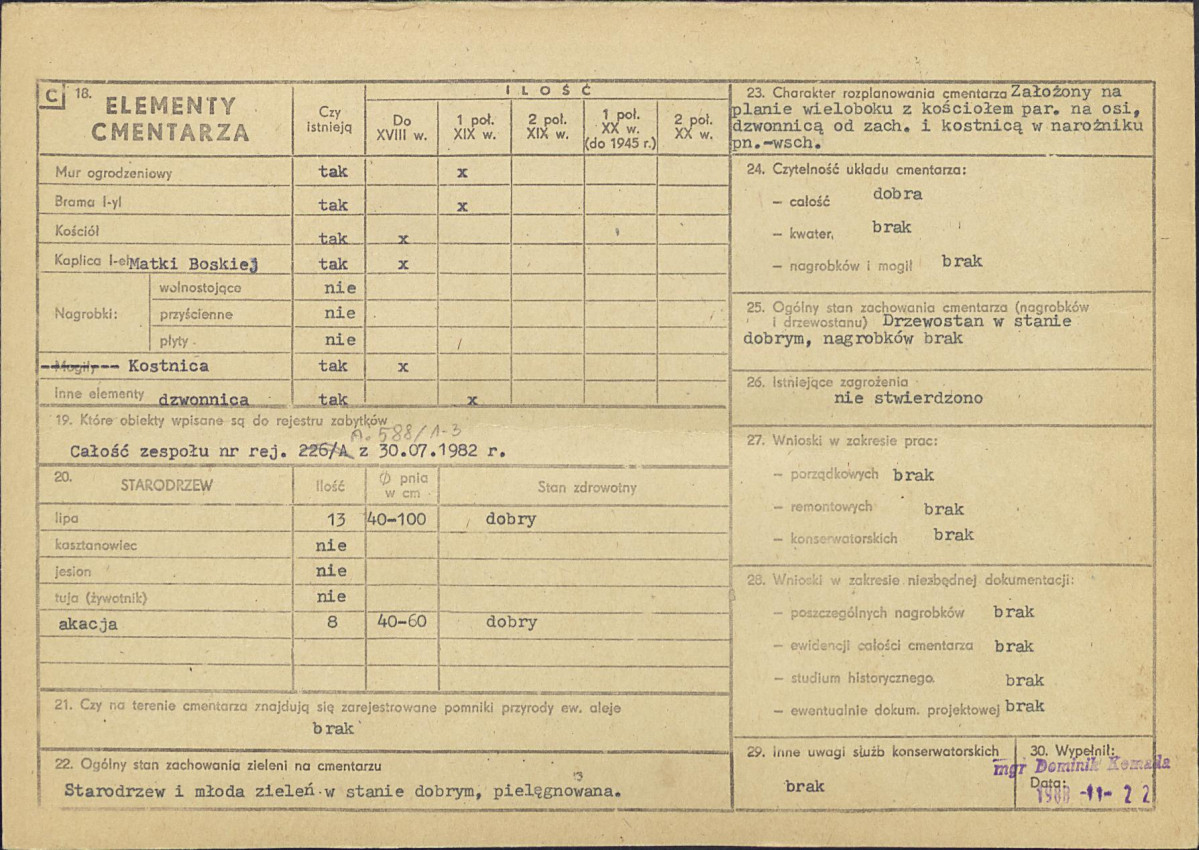 C 18. ELEMENTY CMENTARZA
Czy istnieją
ILOŚĆ
Do XVIII w.
1 poł. XIX w.
2 poł. XIX w.
1 poł. XX w. (do 1945 r.)
2 poł. XX w.
Mur ogrodzeniowy tak x
Brama I-yl tak x
Kościół tak x
Kaplica I-el Matki Boskiej tak x
Nagrobki:
wolnostojące nie
przyścienne nie
płyty nie
Mogiły Kostnica tak x
Inne elementy dzwonnica tak x
19. Które obiekty wpisane są do rejestru zabytków
A-588/1-3
Całość zespołu nr rej. 226/A z 30.07.1982 r.
20. STARODRZEW Ilość Ø pnia w cm Stan zdrowotny
lipa 13 40-100 dobry
kasztanowiec nie
jesion nie
tuja (żywotnik) nie
akacja 8 40-60 dobry
21. Czy na terenie cmentarza znajdują się zarejestrowane pomniki przyrody ew. aleje
brak
22. Ogólny stan zachowania zieleni na cmentarzu
Starodrzew i młoda zieleń w stanie dobrym, pielęgnowana.
23. Charakter rozplanowania cmentarza Założony na
planie wieloboku z kościołem par. na osi,
dzwonnicą od zach. i kostnicą w narożniku
pn.-wsch.
24. Czytelność układu cmentarza:
– całość dobra
– kwater, brak
– nagrobków i mogił brak
25. Ogólny stan zachowania cmentarza (nagrobków
i drzewostanu) Drzewostan w stanie
dobrym, nagrobków brak
26. Istniejące zagrożenia
nie stwierdzono
27. Wnioski w zakresie prac:
– porządkowych brak
– remontowych brak
– konserwatorskich brak
28. Wnioski w zakresie niezbędnej dokumentacji:
– poszczególnych nagrobków brak
– ewidencji całości cmentarza brak
– studium historycznego brak
– ewentualnie dokum. projektowej brak
29. Inne uwagi służb konserwatorskich
brak
30. Wypełnił:
mgr Dominik Komada
Data:
1988 -11- 22